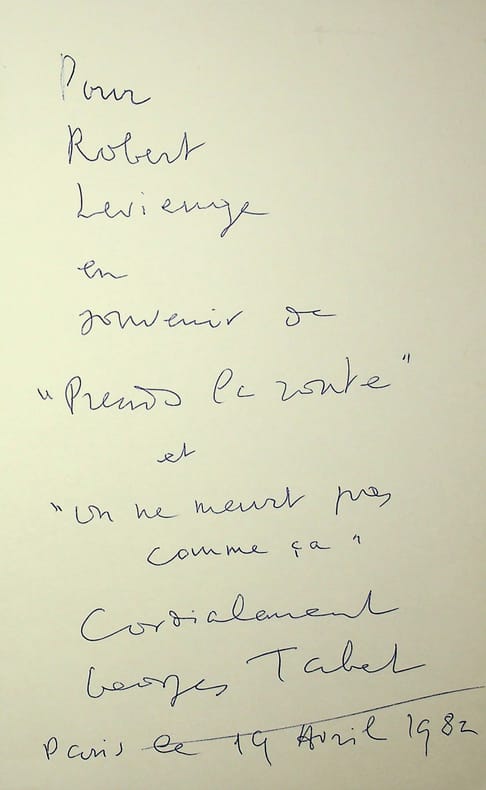 Pour
Robert
Levieuge
en
souvenir de
"Prends la route"
et
"on ne meurt pas
comme ça"
Cordialement
Georges Tabet
Paris le 19 Avril 1982